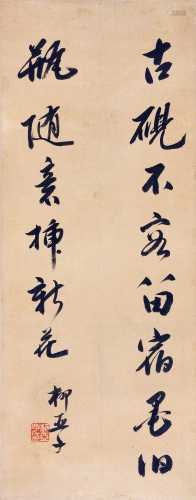 古砚不容留宿墨旧
瓶随意插新花
柳亚子